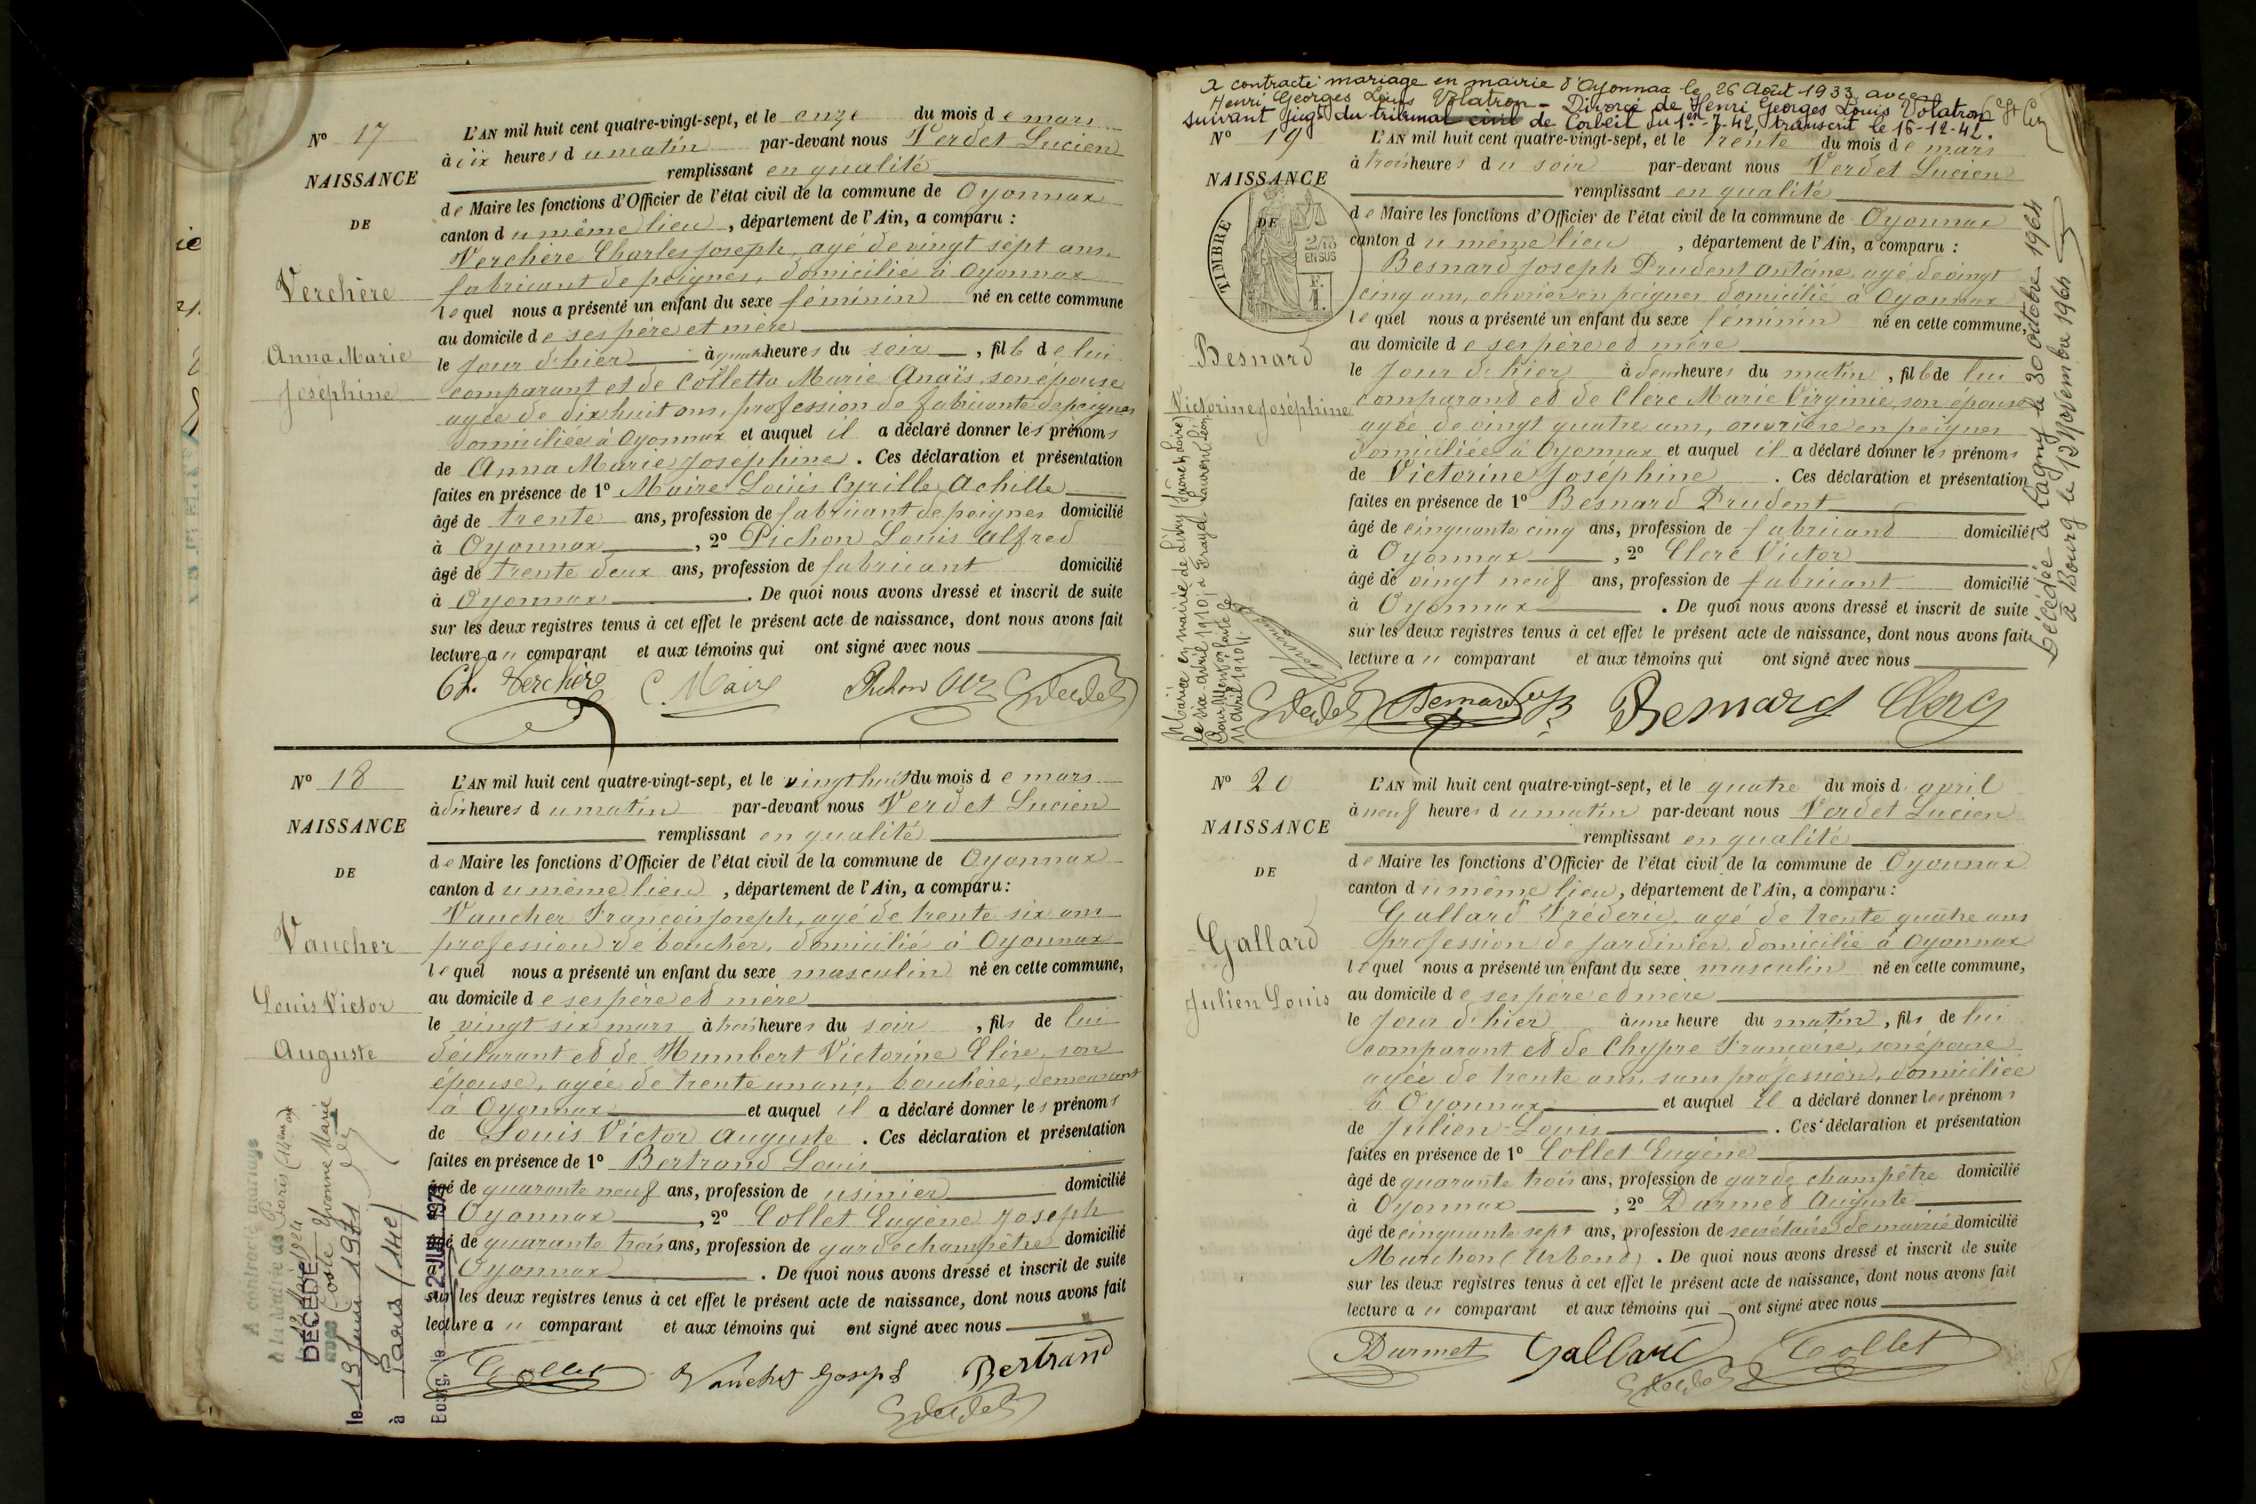 Nº 17
NAISSANCE
DE
Verchère
Anna Marie
Joséphine
L'AN mil huit cent quatre-vingt-sept, et le onze du mois de mars
à dix heures du matin par-devant nous Verdet Lucien
remplissant en qualité
de Maire les fonctions d'Officier de l'état civil de la commune de Oyonnax
canton du même lieu, département de l'Ain, a comparu :
Verchère Charles Joseph, agé de vingt sept ans
fabricant de peignes, domicilié à Oyonnax
lequel nous a présenté un enfant du sexe féminin né en cette commune
au domicile de ses père et mère
le jour d'hier à quatre heures du soir, fille de lui
comparant et de Colletta Marie Anaïs, son épouse
agée de dix huit ans, profession de fabricante de peignes
domiciliée à Oyonnax et auquel il a déclaré donner les prénoms
de Anna Marie Joséphine. Ces déclaration et présentation
faites en présence de 1º Maire Louis Cyrille Achille
âgé de trente ans, profession de fabricant de peignes domicilié
à Oyonnax, 2º Pichon Louis Alfred
âgé de trente deux ans, profession de fabricant domicilié
à Oyonnax. De quoi nous avons dressé et inscrit de suite
sur les deux registres tenus à cet effet le présent acte de naissance, dont nous avons fait
lecture au comparant et aux témoins qui ont signé avec nous
Ch. Verchère C. Maire Pichon Verdet
Nº 18
NAISSANCE
DE
Vaucher
Louis Victor
Auguste
L'AN mil huit cent quatre-vingt-sept, et le vingt huit du mois de mars
à dix heures du matin par-devant nous Verdet Lucien
remplissant en qualité
de Maire les fonctions d'Officier de l'état civil de la commune de Oyonnax
canton du même lieu, département de l'Ain, a comparu :
Vaucher François Joseph, agé de trente six ans
profession de boucher, domicilié à Oyonnax
lequel nous a présenté un enfant du sexe masculin né en cette commune,
au domicile de ses père et mère
le vingt six mars à trois heures du soir, fils de lui
déclarant et de Humbert Victorine Elise, son
épouse, agée de trente un ans, bouchère, demeurant
à Oyonnax et auquel il a déclaré donner les prénoms
de Louis Victor Auguste. Ces déclaration et présentation
faites en présence de 1º Bertrand Louis
âgé de quarante neuf ans, profession de usinier domicilié
Oyonnax, 2º Collet Eugène Joseph
âgé de quarante trois ans, profession de garde champêtre domicilié
Oyonnax. De quoi nous avons dressé et inscrit de suite
sur les deux registres tenus à cet effet le présent acte de naissance, dont nous avons fait
lecture au comparant et aux témoins qui ont signé avec nous
Collet Vaucher Joseph Bertrand
Verdet
A contracté mariage
à la Mairie de Paris (14ème)
1924
avec Coste Yvonne Marie
DÉCÉDÉ
le 19 Juin 1971
à Paris (14e)
Bourg, le 2 JUIL 1971
A contracté mariage en mairie d'Oyonnax le 26 Août 1933 avec
Henri Georges Louis Volatron - Divorcé de Henri Georges Louis Volatron
suivant jugt du tribunal civil de Corbeil du 1er-7-42, transcrit le 16-12-42.
Nº 19
NAISSANCE
DE
TIMBRE
2/10
EN SUS
Besnard
Victorine Joséphine
L'AN mil huit cent quatre-vingt-sept, et le trente du mois de mars
à trois heures du soir par-devant nous Verdet Lucien
remplissant en qualité
de Maire les fonctions d'Officier de l'état civil de la commune de Oyonnax
canton du même lieu, département de l'Ain, a comparu :
Besnard Joseph Prudent Antoine, agé de vingt
cinq ans, ouvrier en peignes domicilié à Oyonnax
lequel nous a présenté un enfant du sexe féminin né en cette commune,
au domicile de ses père et mère
le jour d'hier à deux heures du matin, fille de lui
comparant et de Clerc Marie Virginie, son épouse
agée de vingt quatre ans, ouvrière en peignes
domiciliée à Oyonnax et auquel il a déclaré donner les prénoms
de Victorine Joséphine. Ces déclaration et présentation
faites en présence de 1º Besnard Prudent
âgé de cinquante cinq ans, profession de fabricant domicilié
à Oyonnax, 2º Clerc Victor
âgé de vingt neuf ans, profession de fabricant domicilié
à Oyonnax. De quoi nous avons dressé et inscrit de suite
sur les deux registres tenus à cet effet le présent acte de naissance, dont nous avons fait
lecture au comparant et aux témoins qui ont signé avec nous
Verdet Besnard Besnard Clerc
Mariée en mairie de
avril 1910, à
11 avril 1910
Décédée à Lagny le 30 octobre 1964
à Bourg le 13 Novembre 1964
Nº 20
NAISSANCE
DE
Gallard
Julien Louis
L'AN mil huit cent quatre-vingt-sept, et le quatre du mois d avril
à neuf heures du matin par-devant nous Verdet Lucien
remplissant en qualité
de Maire les fonctions d'Officier de l'état civil de la commune de Oyonnax
canton du même lieu, département de l'Ain, a comparu :
Gallard Fréderic, agé de trente quatre ans
profession de jardinier domicilié à Oyonnax
lequel nous a présenté un enfant du sexe masculin né en cette commune,
au domicile de ses père et mère
le jour d'hier à une heure du matin, fils de lui
comparant et de Chypre Françoise, son épouse
agée de trente ans, sans profession, domiciliée
à Oyonnax et auquel il a déclaré donner les prénoms
de Julien-Louis. Ces déclaration et présentation
faites en présence de 1º Collet Eugène
âgé de quarante trois ans, profession de garde champêtre domicilié
à Oyonnax, 2º Darmet Auguste
âgé de cinquante sept ans, profession de secrétaire de mairie domicilié
Marchon (Arbent). De quoi nous avons dressé et inscrit de suite
sur les deux registres tenus à cet effet le présent acte de naissance, dont nous avons fait
lecture au comparant et aux témoins qui ont signé avec nous
Darmet Gallard Collet
Verdet